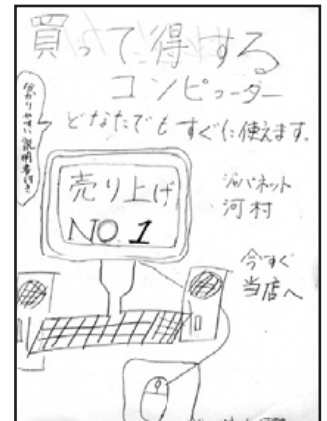 買って得する
コンピューター
どなたでもすぐに使えます。
分かりやすい説明書付き
売り上げ
NO.1
ジャパネット
河村
今すぐ
当店へ